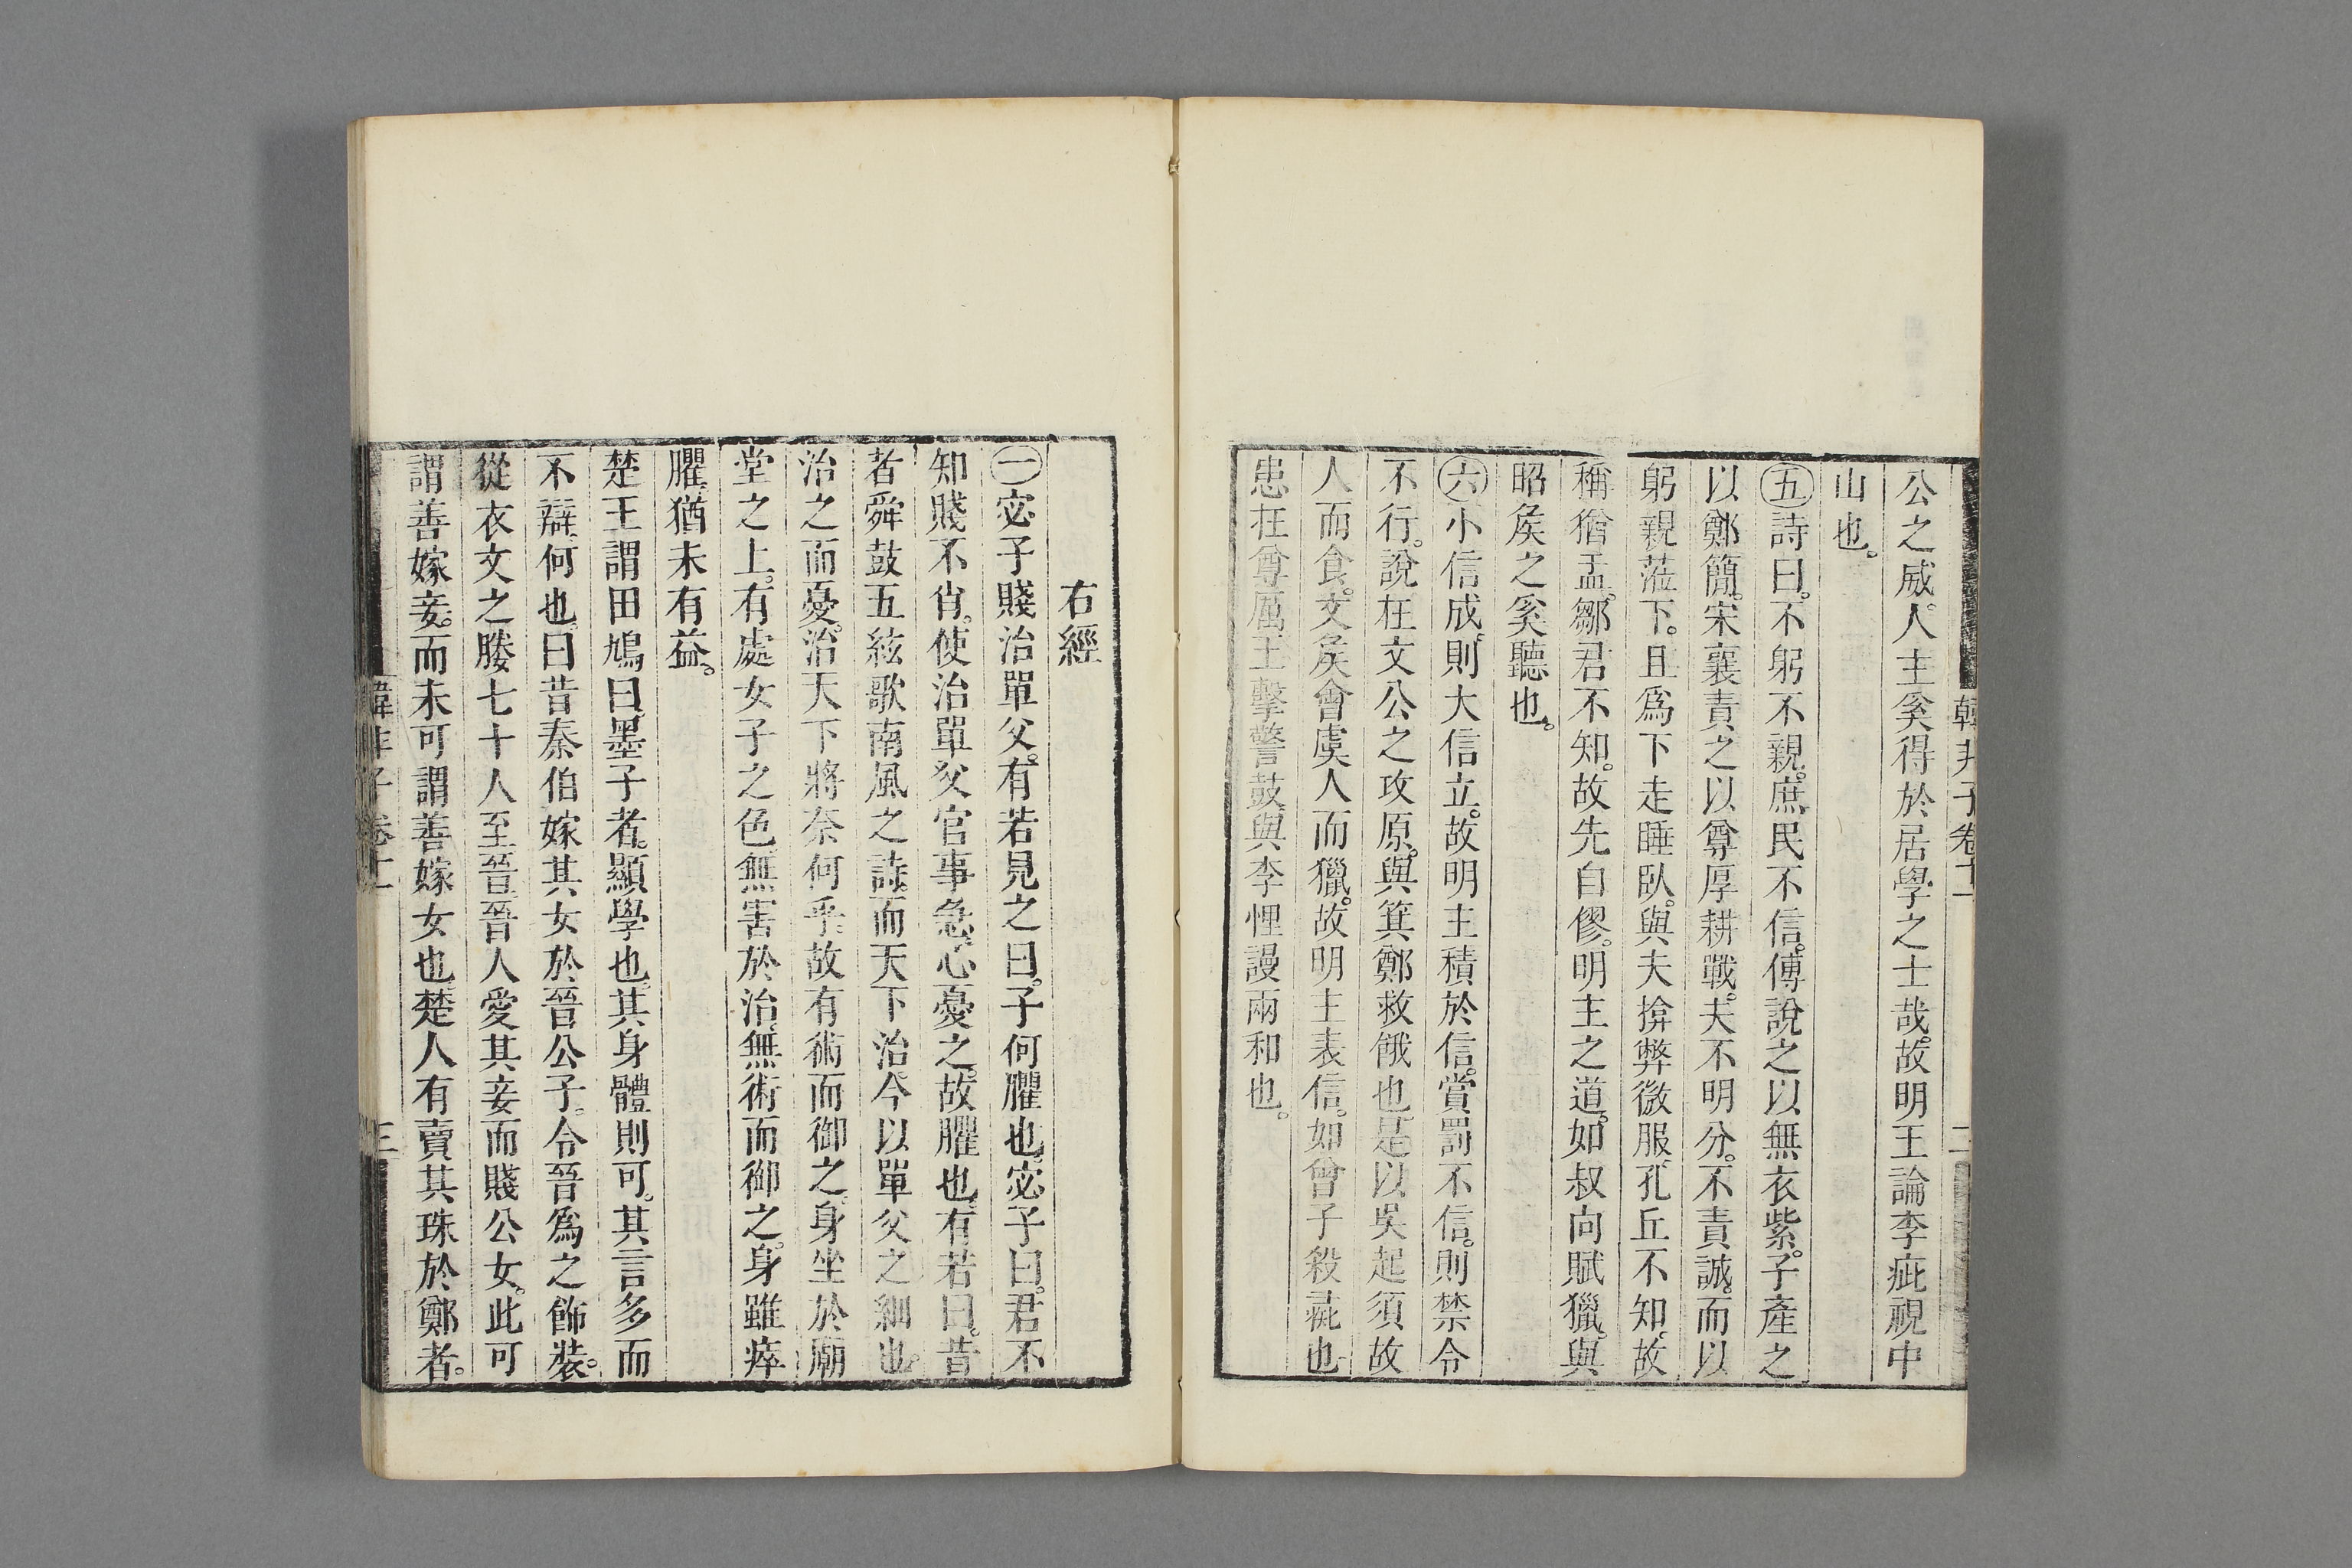 韓非子卷十一 二
公之威。人主奚得於居學之士哉。故明王論李疵視中
山也。
㊄詩曰。不躬不親。庶民不信。傅說之以無衣紫。子產之
以鄭簡。宋襄責之以尊厚耕戰。夫不明分。不責誠。而以
躬親蒞下。且爲下走睡臥。與夫揜弊微服。孔丘不知。故
稱猶盂。鄒君不知。故先自僇。明主之道。如叔向賦獵。與
昭矦之奚聽也。
㊅小信成。則大信立。故明主積於信。賞罰不信。則禁令
不行。說在文公之攻原。與箕鄭救餓也。是以吳起須故
人而食。文矦會虞人而獵。故明主表信。如曾子殺彘也
患在尊厲王擊警鼓與李悝謾兩和也。
右經
㊀宓子賤治單父。有若見之曰。子何臞也。宓子曰。君不
知賤不肖。使治單父。官事急。心憂之。故臞也。有若曰。昔
者舜鼓五絃歌南風之詩。而天下治。今以單父之細也。
治之而憂。治天下將奈何乎。故有術而御之。身坐於廟
堂之上。有處女子之色。無害於治。無術而御之。身雖瘁
臞。猶未有益。
楚王謂田鳩曰。墨子者。顯學也。其身體則可。其言多而
不辯。何也。曰。昔秦伯嫁其女於晉公子。令晉爲之飾裝。
從衣文之媵七十人。至晉。晉人愛其妾而賤公女。此可
謂善嫁妾。而未可謂善嫁女也。楚人有賣其珠於鄭者。
韓非子卷十一 三